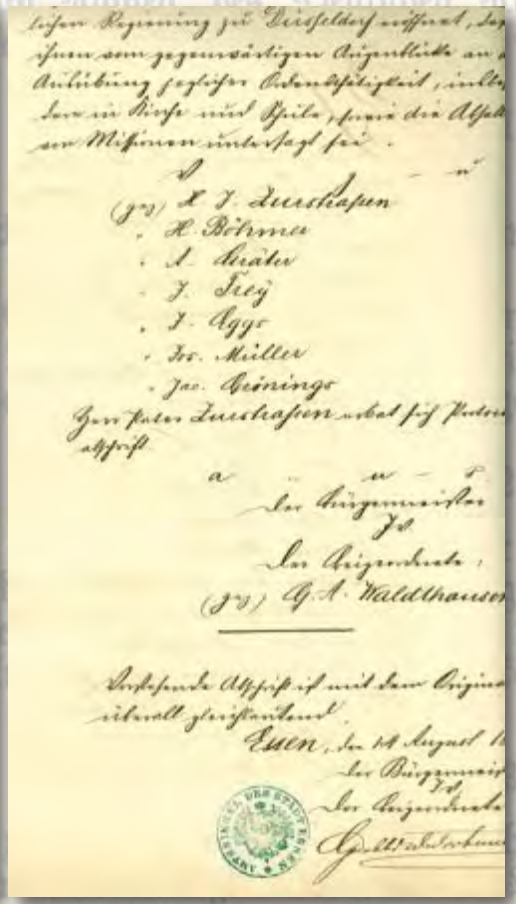 lichen Regierung zu Düsseldorf eröffnet, daß
ihnen vom gegenwärtigen Augenblicke an
Ausübung jeglicher Ordensthätigkeit, insbeson
dere in Kirche und Schule, sowie die Abhalt
von Missionen untersagt sei.
V g u
(gez) H J. Zurstrassen
" H. Böhmer
" A. Gräter
" J. Frey
" J. Eggs
" Jos. Müller
" Jac. Grönings
Herr Pater Zurstrassen erbat sich Protoco
abschrift.
a u s
Der Bürgermeister
J.V.
Der Beigeordnete,
(gez) G. A. Waldthausen
Vorstehende Abschrift ist mit dem Origina
überall gleichlautend.
Essen, den August 18
Der Bürgermeis
J.V.
Der Beigeordnete
AMTSSIEGEL DER STADT ESSEN